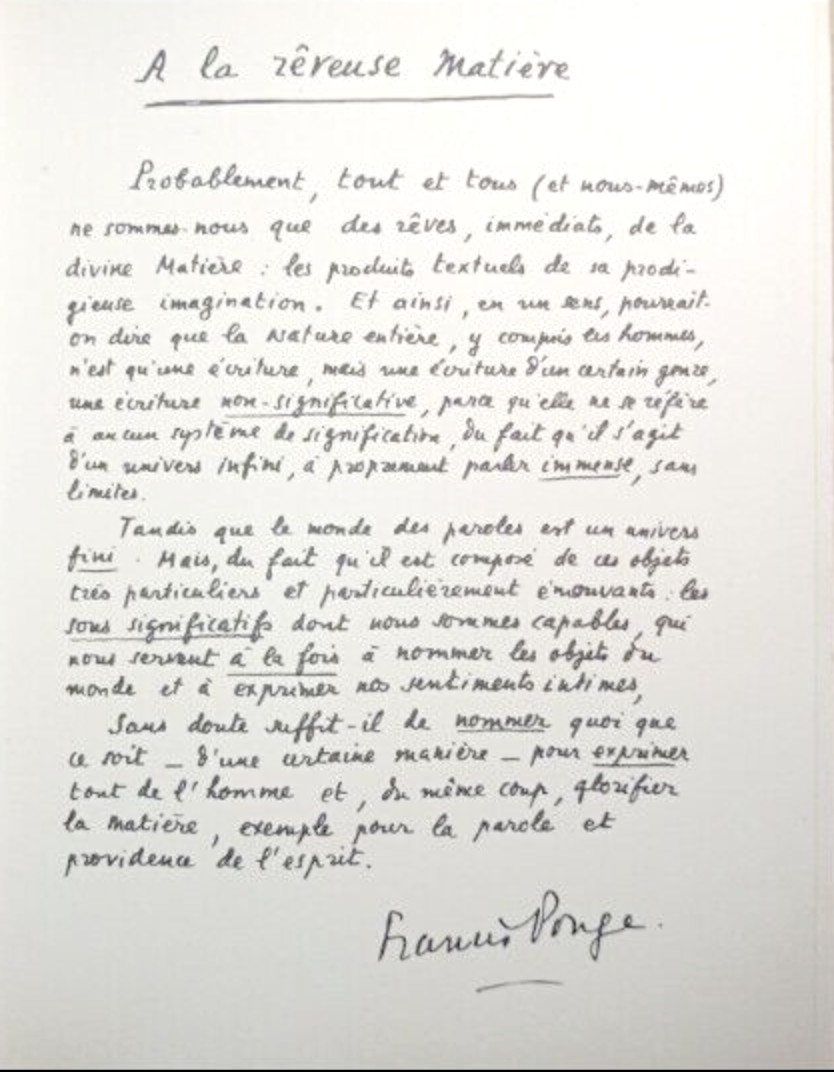 A la rêveuse Matière
Probablement, tout et tous (et nous-mêmes)
ne sommes-nous que des rêves, immédiats, de la
divine Matière : les produits textuels de sa prodi-
gieuse imagination. Et ainsi, en un sens, pourrait-
on dire que la Nature entière, y compris les hommes,
n'est qu'une écriture, mais une écriture d'un certain genre,
une écriture non-significative, parce qu'elle ne se réfère
à aucun système de signification, du fait qu'il s'agit
d'un univers infini, à proprement parler immense, sans
limites.
Tandis que le monde des paroles est un univers
fini. Mais, du fait qu'il est composé de ces objets
très particuliers et particulièrement émouvants : les
sons significatifs dont nous sommes capables, qui
nous servent à la fois à nommer les objets du
monde et à exprimer nos sentiments intimes,
Sans doute suffit-il de nommer quoi que
ce soit _ d'une certaine manière _ pour exprimer
tout de l'homme et, du même coup, glorifier
la matière, exemple pour la parole et
providence de l'esprit.
Francis Ponge.